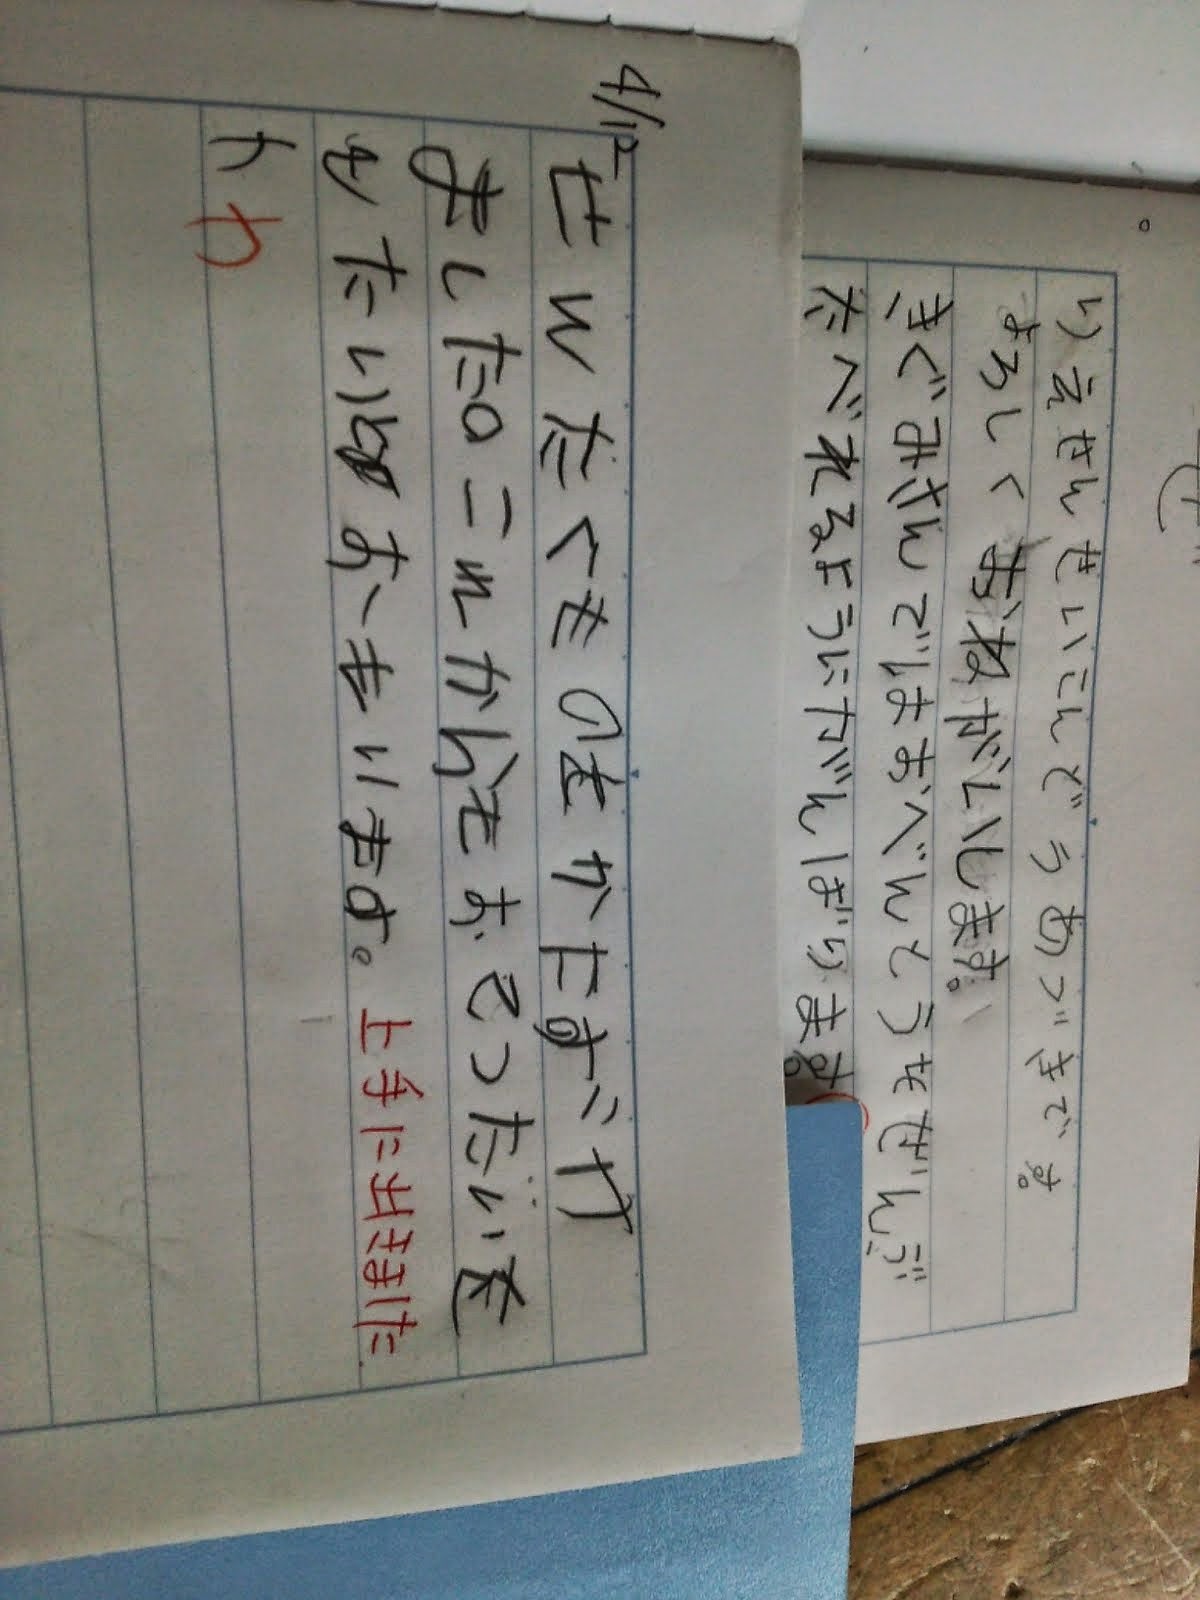 りえせんせいこんどうあづきです。
よろしくおねがいします。
きぐみさんでもおべんとうをぜんぶ
たべれるようにがんばります。
4/12
せんたくものをかたずけ
ました。これからもおてつだいを
たいとおもいます。上手に出きました